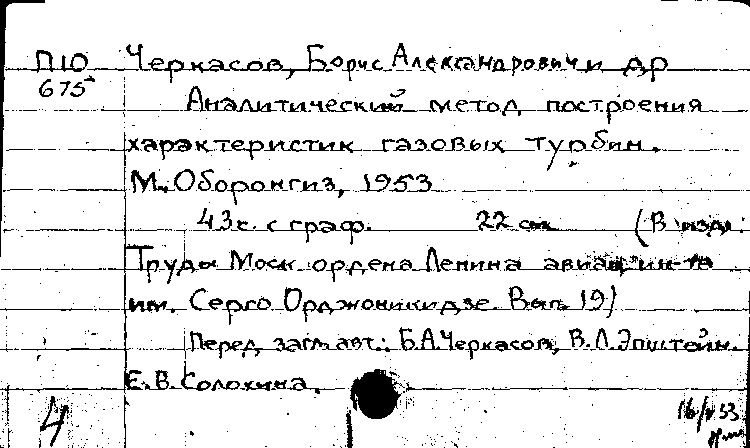 П10 Черкасов, Борис Александрович и др
675 Аналитический метод построения
характеристик газовых турбин.
М., Оборонгиз, 1953
43с. с граф. 22 см (В изд:
Труды Моск. ордена Ленина авиац. ин-та
им. Серго Орджоникидзе. Вып. 19)
Перед загл. авт.: Б.А. Черкасов, В.Л. Эпштейн.
Е.В. Солохина.
4